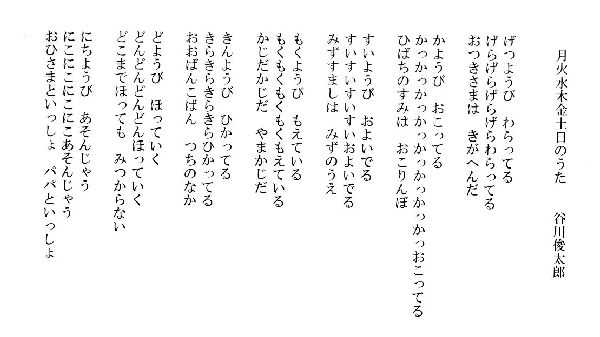 月火水木金土日のうた　谷川俊太郎
げつようび　わらってる
げらげらげらげらわらってる
おつきさまは　きがへんだ
かようび　おこってる
かっかっかっかっかっかっかっかっおこってる
ひばちのすみは　おこりんぼ
すいようび　およいでる
すいすいすいすいおよいでる
みずすましは　みずのうえ
もくようび　もえている
もくもくもくもくもえている
かじだかじだ　やまかじだ
きんようび　ひかってる
きらきらきらきらひかってる
おおばんこばん　つちのなか
どようび　ほっていく
どんどんどんどんほっていく
どこまでほっても　みつからない
にちようび　あそんじゃう
にこにこにこにこあそんじゃう
おひさまといっしょ　パパといっしょ